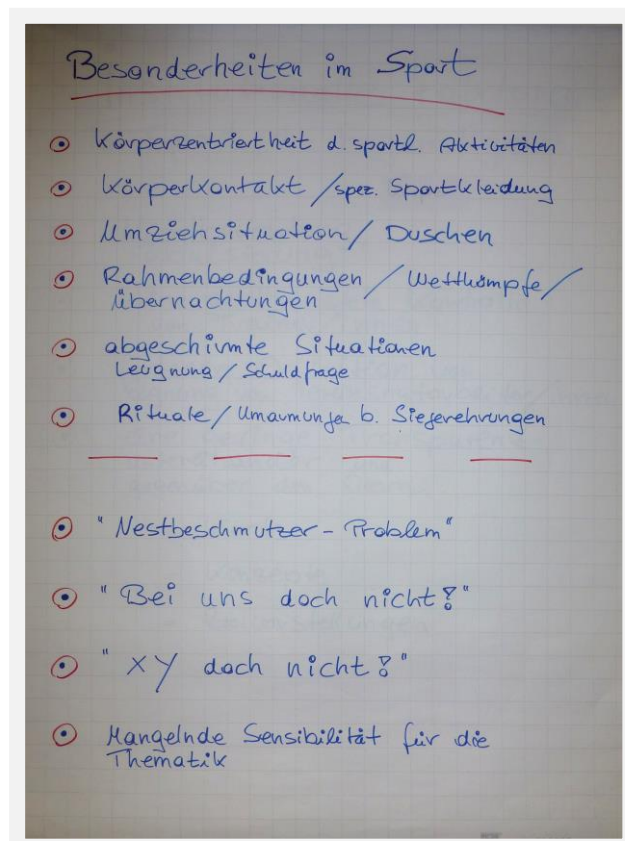 Besonderheiten im Sport
Körperzentriertheit d. sportl. Aktivitäten
Körperkontakt / spez. Sportkleidung
Umziehsituation / Duschen
Rahmenbedingungen / Wettkämpfe /
Übernachtungen
abgeschirmte Situationen
Leugnung / Schuldfrage
Rituale / Umarmungen b. Siegerehrungen
"Nestbeschmutzer - Problem"
"Bei uns doch nicht?"
"XY doch nicht?"
Mangelnde Sensibilität für die
Thematik